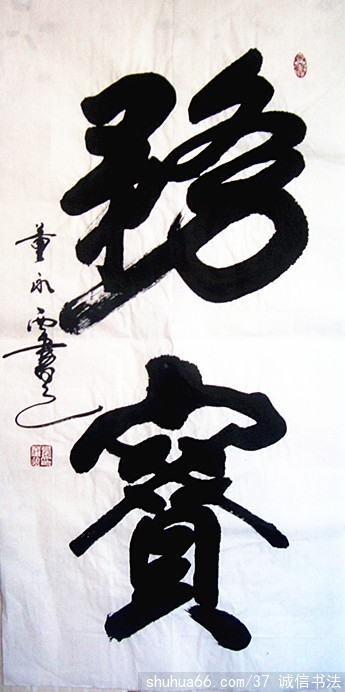 務實
董永西書
shuhua66.com/37 诚信书法